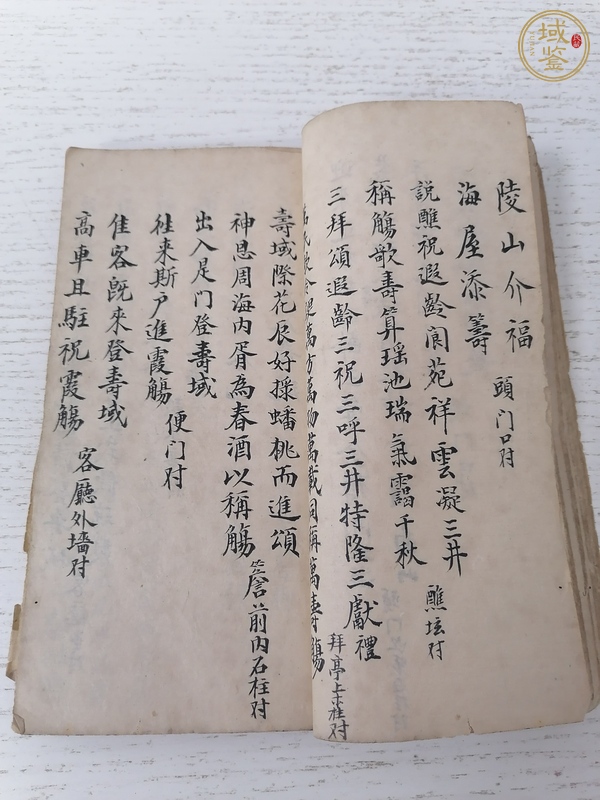 陵山介福 頭门口対
海屋添籌
説醮祝遐齡閬苑祥雲凝三井 醮坛対
稱觴歌壽算瑶池瑞氣靄千秋
三拜頌遐齡三祝三呼三井特隆三獻禮
萬方萬物萬載同稱萬壽觴 拜亭上柱対
壽域際花辰好採蟠桃而進頌
神恩周海内胥為春酒以稱觴 簷前内石柱対
出入是门登壽域
往来斯户進霞觴 便门対
佳客既来登壽域
高車且駐祝霞觴 客廳外墻対
域鉴